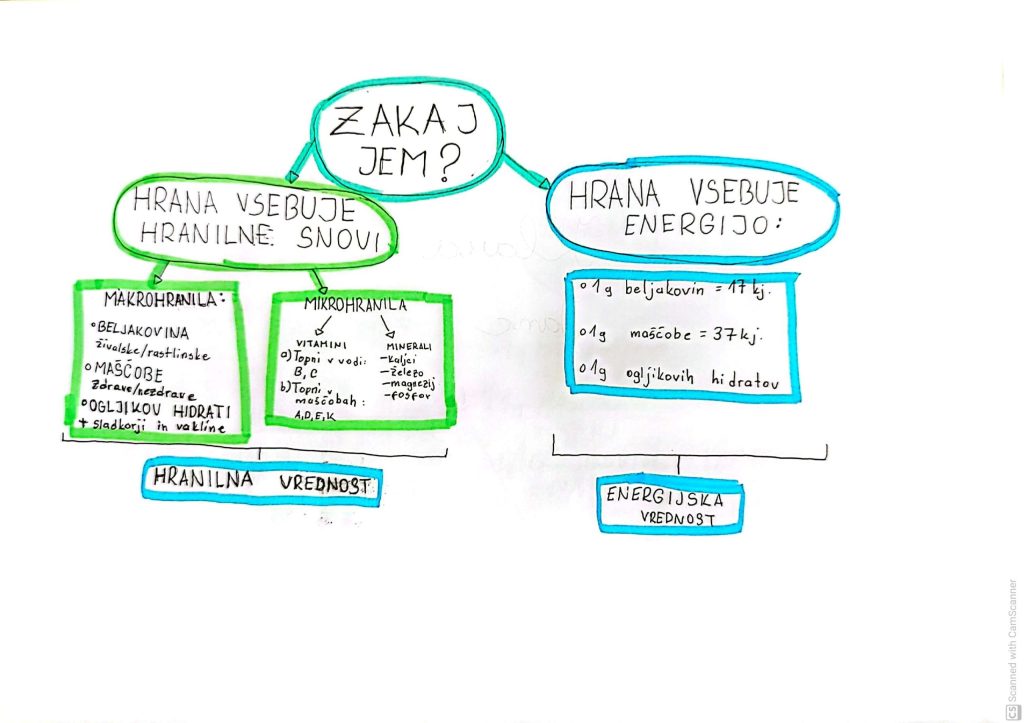 ZAKAJ
JEM?
HRANA VSEBUJE
HRANILNE SNOVI
MAKROHRANILA:
°BELJAKOVINA
živalske/rastlinske
°MAŠČOBE
zdrave/nezdrave
°OGLJIKOV HIDRATI
+ sladkorji in vakline
MIKROHRANILA
VITAMINI
a) Topni v vodi:
B, C
b) Topni v
maščobah:
A, D, E, K
MINERALI
-kaljci
-železo
-magnezij
-fosfor
HRANILNA VREDNOST
HRANA VSEBUJE
ENERGIJO:
°1g beljakovin = 17 kj.
°1g maščobe = 37 kj.
°1g ogljikovih hidratov
ENERGIJSKA
VREDNOST
CS Scanned with CamScanner